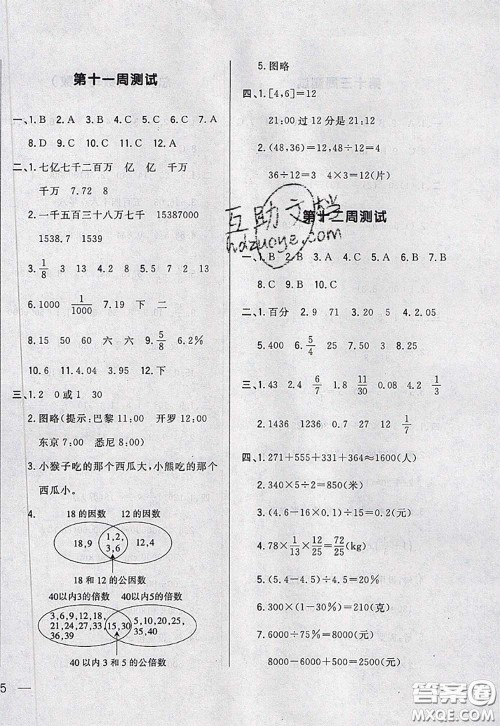 第十一周测试
一、1. B 2. A 3. B 4. C 5. B 6. C 7. A
8. D 9. C 10. A 11. B 12. C
二、1. 七亿七千二百万 亿 亿 千万
千万 7.72 8
2. 一千五百三十八万七千 15387000
1538.7 1539
3. 1/8 3 13 4. 15 40
5. 1000 1/1000 7. 119 8. 下 二
7. 18 5 33 9. 5/8 6.2%
10. 6 11. 4.04 3.96 12. 下
三、1. 2 0或1 30
2. 图略(提示:巴黎11:00 开罗12:00
东京7:00 悉尼8:00)
3. 小猴子吃的那个西瓜大,小熊吃的那个
西瓜小。
4.
18的因数 12的因数
18,9 1,2, 3,6 12,4
18和12的公因数
40以内3的倍数 40以内5的倍数
3,6,9,12,18, 21,24,27,33, 36,39 15,30 5,10,20, 25,35,40
40以内3和5的公倍数
5. 图略
四、1. [4,6]=12
21:00过12分是21:12
2. (48,36)=12 48÷12=4
36÷12=3 4×3=12(片)
第十二周测试
一、1. B 2. A 3. A 4. C 5. B 6. B 7. B
8. C 9. C 10. A
二、1. 百分 2. 9 71 3. 5 4. 2.05
5. 400 6. 5/8 62.5 7. 24
三、1. 43 2.4 6/7 1.8 11/30 0.08 4/9
2. 1436 1236 2.7 6 3/4
四、1. 271+555+331+364≈1600(人)
2. 300×5-650=850(米)
3. (4.6-4)×15=0.2(元)
4. 78×1/13×12/25=72/25(kg)
5. (2.4-1.6)×15=12(元)
6. 300×2+310-700=210(克)
7. 6000×2÷75%=8000(元)
8000-6000-500=1500(元)
5
互助文档
hdzuoye.com
答案圈
MXQE.COM